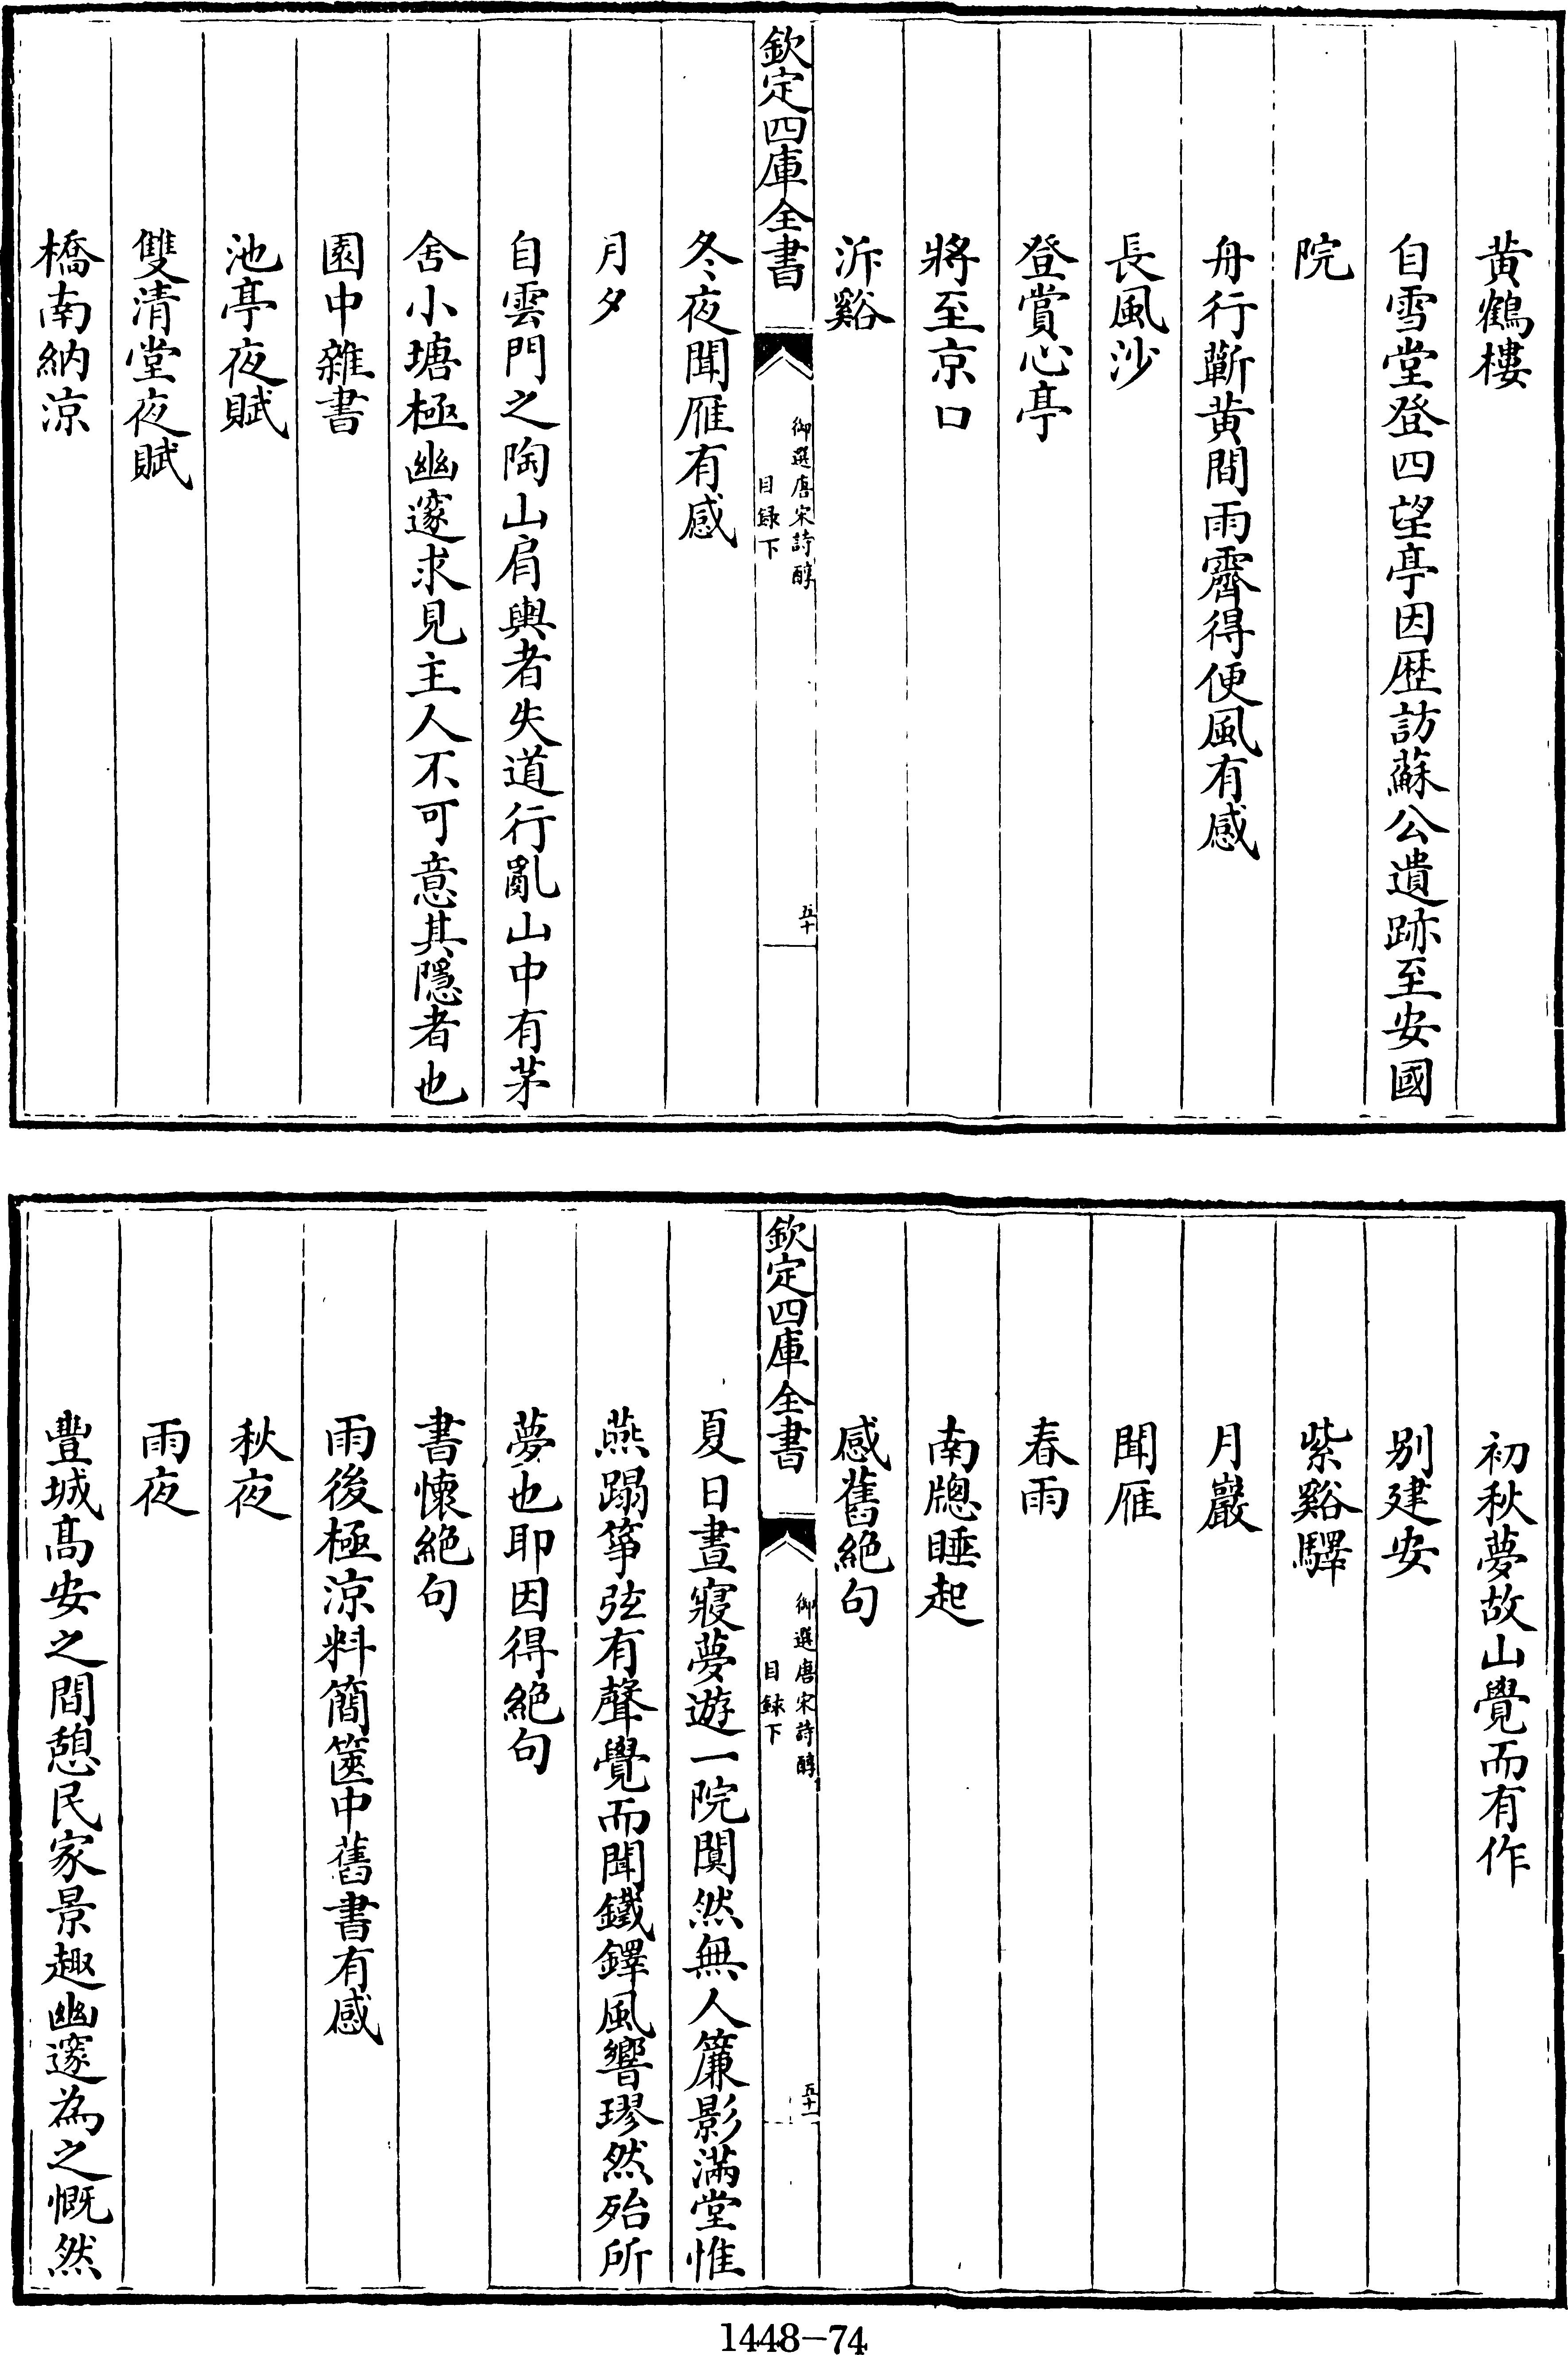 黄鶴樓
自雪堂登四望亭因歴訪蘇公遺跡至安國
院
舟行蘄黄間雨霽得便風有感
長風沙
登賞心亭
將至京口
泝谿
欽定四庫全書
御選唐宋詩醇
目録下
五十
冬夜聞雁有感
月夕
自雲門之陶山肩輿者失道行亂山中有茅
舍小塘極幽邃求見主人不可意其隱者也
園中雜書
池亭夜賦
雙清堂夜賦
橋南納涼
初秋夢故山覺而有作
别建安
紫谿驛
月巖
聞雁
春雨
南牕睡起
感舊絶句
欽定四庫全書
御選唐宋詩醇
目録下
五十一
夏日晝寢夢遊一院闃然無人簾影滿堂惟
燕蹋箏弦有聲覺而聞鐵鐸風響璆然殆所
夢也耶因得絶句
書懷絶句
雨後極涼料簡篋中舊書有感
秋夜
雨夜
豐城髙安之間憩民家景趣幽邃為之慨然
1448-74